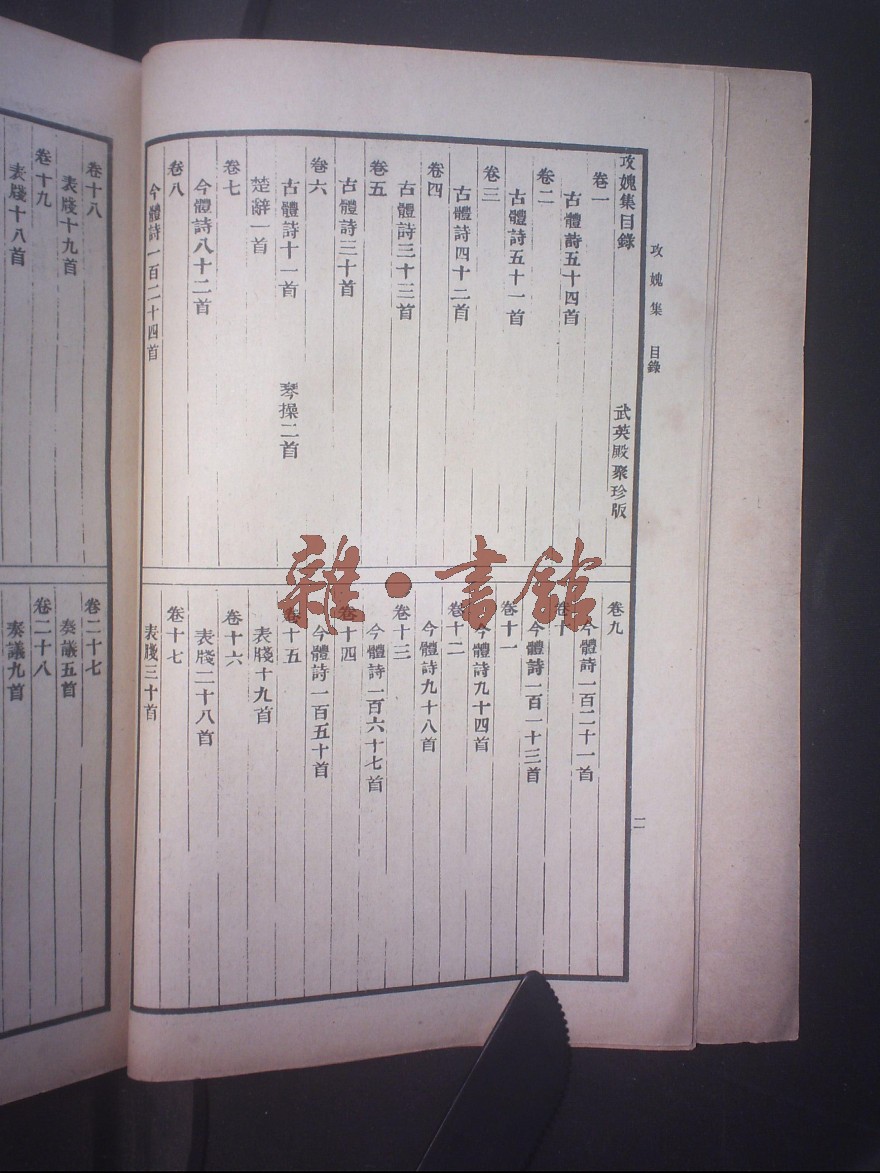 攻媿集 目錄
二
攻媿集目錄 武英殿聚珍版
卷一
古體詩五十四首
卷二
古體詩五十一首
卷三
古體詩四十二首
卷四
古體詩三十三首
卷五
古體詩三十首
卷六
古體詩十一首 琴操二首
楚辭一首
卷七
今體詩八十二首
卷八
今體詩一百二十四首
卷九
今體詩一百二十一首
卷十
今體詩一百一十三首
卷十一
今體詩九十四首
卷十二
今體詩九十八首
卷十三
今體詩一百六十七首
卷十四
今體詩一百五十首
卷十五
表牋十九首
卷十六
表牋二十八首
卷十七
表牋三十首
卷十八
表牋十九首
卷十九
表牋十八首
卷二十七
奏議五首
卷二十八
奏議九首
雜·書館